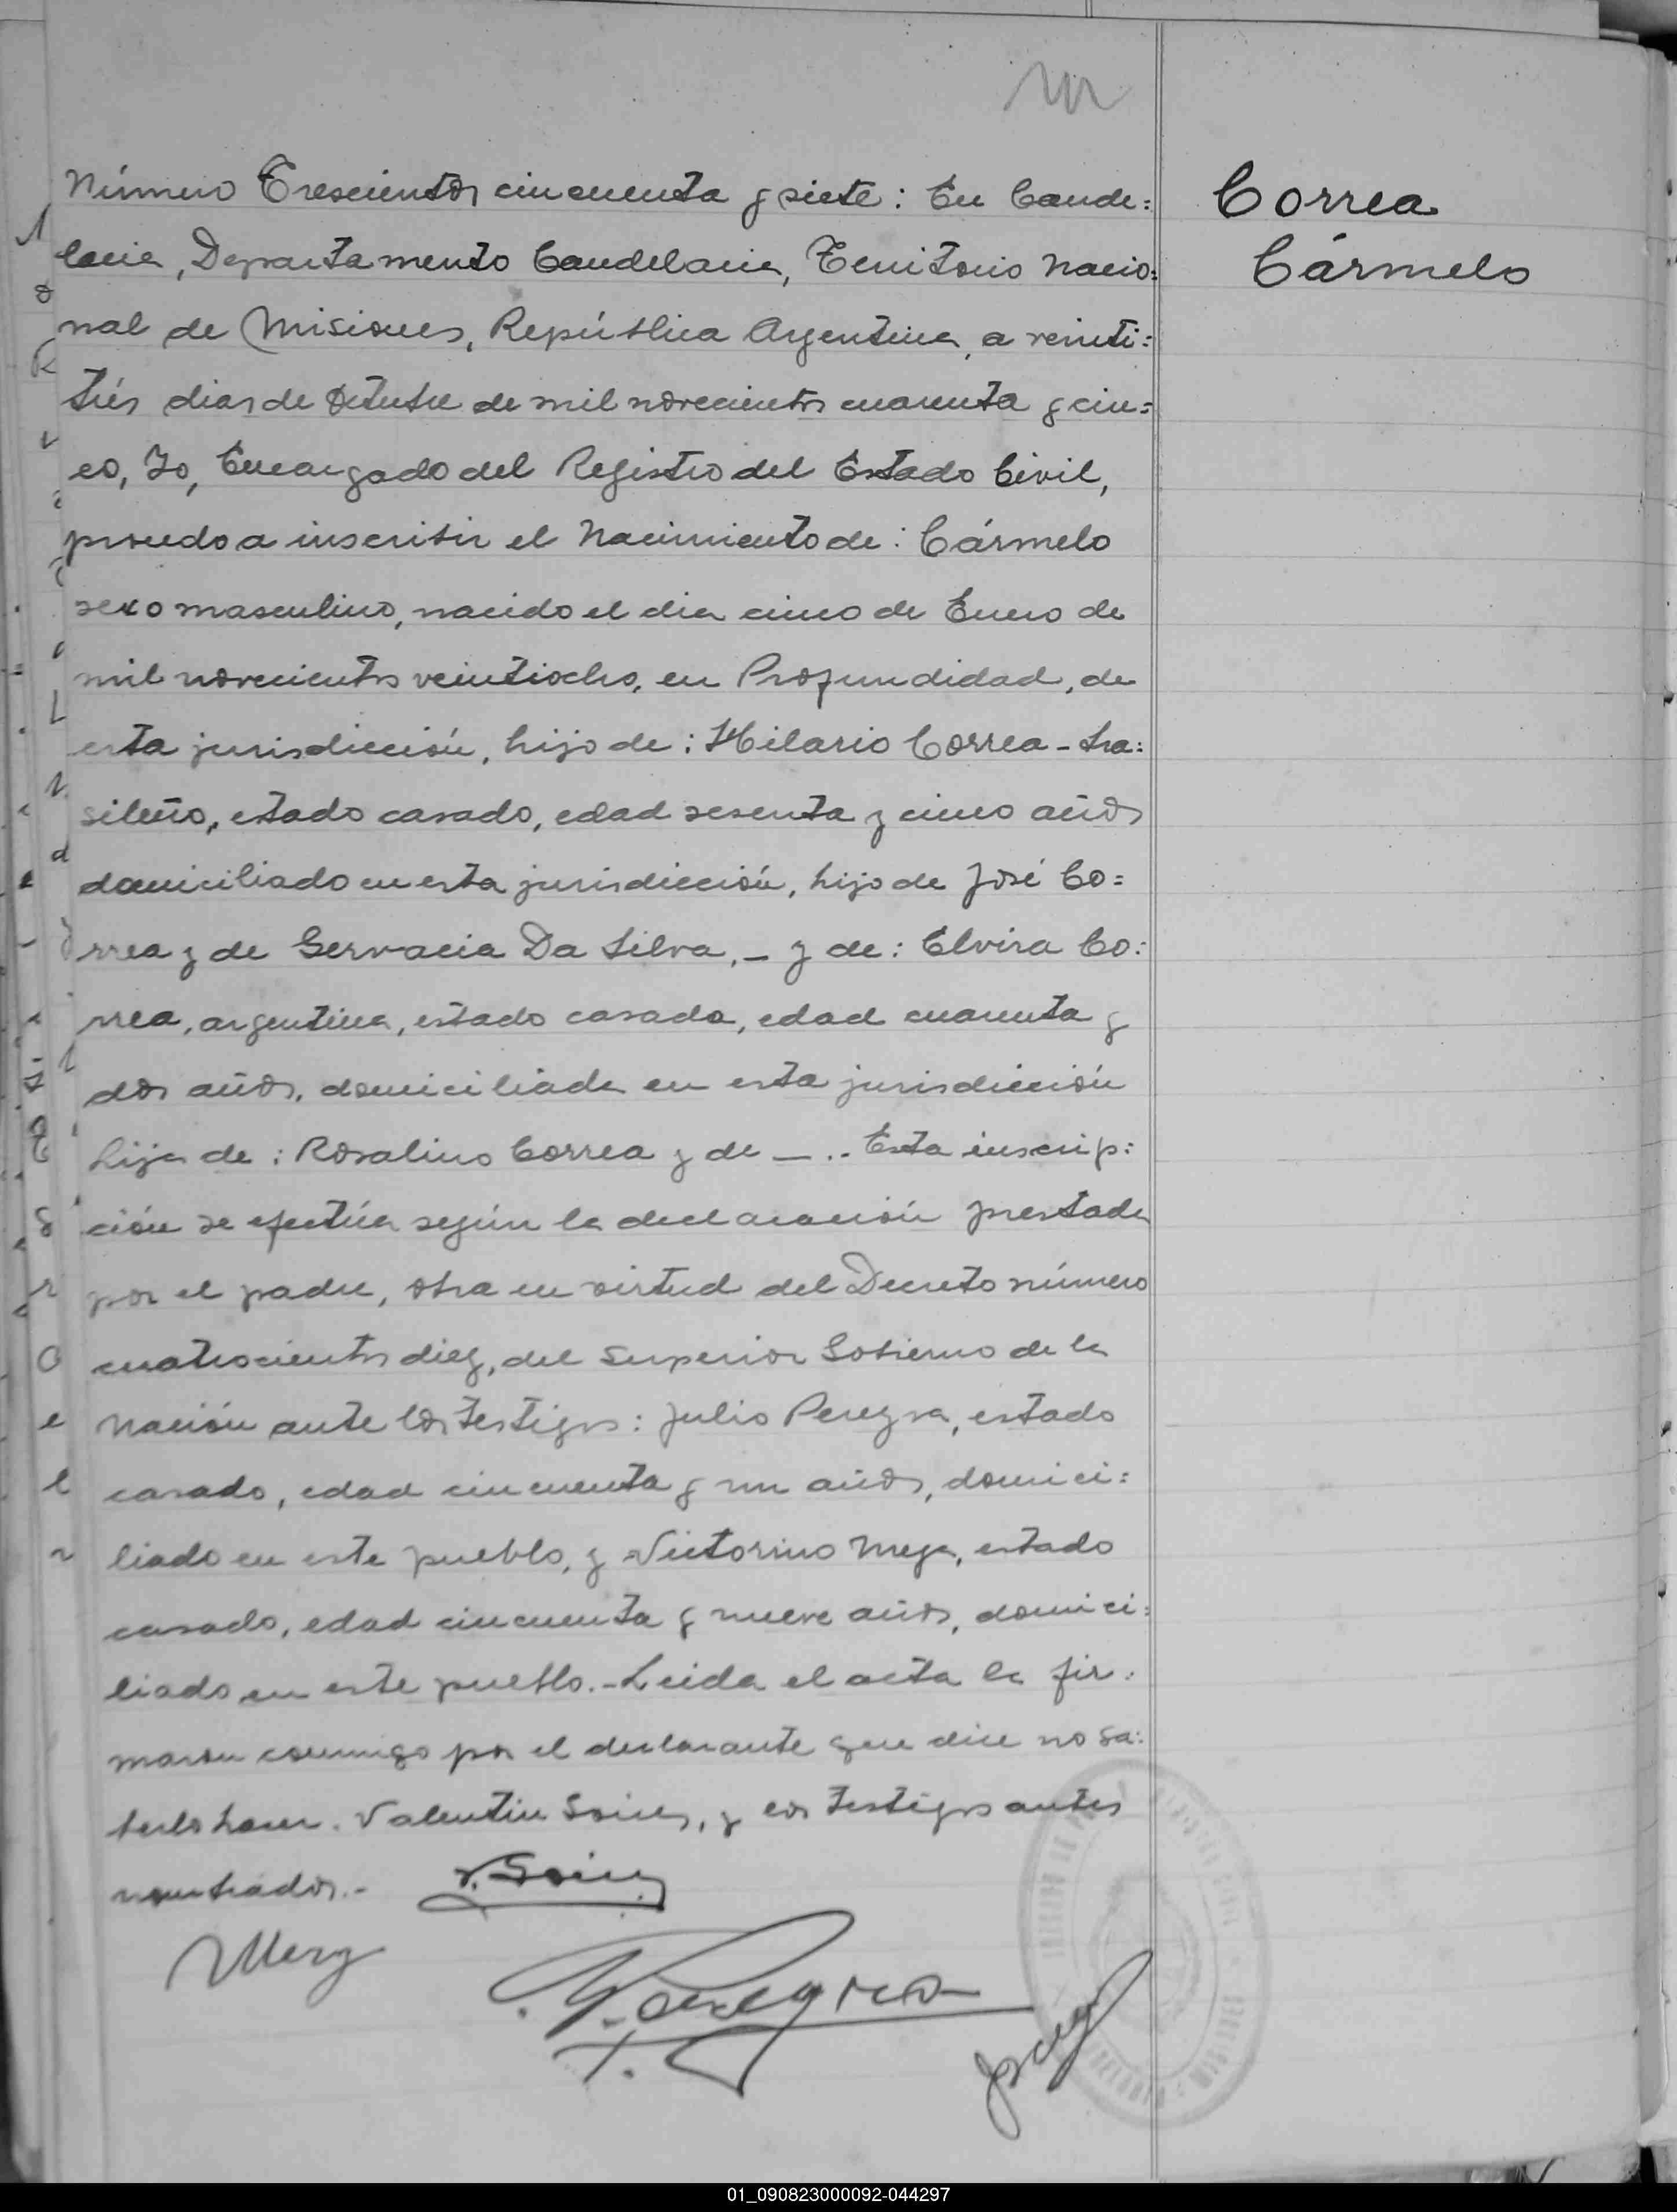 Número Trescientos cincuenta y siete: En Cande=
Correa
laria, Departamento Candelaria, Territorio Nacio=
Cármelo
nal de Misiones, República Argentina, a veinti=
trés dias de Octubre de mil novecientos cuarenta y cin=
co, Yo, Encargado del Registro del Estado Civil,
procedo a inscribir el Nacimiento de: Cármelo
sexo masculino, nacido el dia cinco de Enero de
mil novecientos veintiocho, en Profundidad, de
esta jurisdicción, hijo de: Hilario Correa - bra=
sileño, estado casado, edad sesenta y cinco años
domiciliado en esta jurisdicción, hijo de José Co=
rrea y de Gervacia Da Silva, _ y de: Elvira Co=
rrea, argentina, estado casada, edad cuarenta y
dos años, domiciliada en esta jurisdicción
hija de: Rosalino Correa y de _ .. Esta inscrip=
ción se efectúa según la declaración prestada
por el padre, obra en virtud del Decreto número
cuatrocientos diez, del Superior Gobierno de la
Nación ante los testigos: Julio Pereyra, estado
casado, edad cincuenta y un años, domici=
liado en este pueblo, y Victorino Meza, estado
casado, edad cincuenta y nueve años, domici=
liado en este pueblo.-Leida el acta la fir=
maron conmigo por el declarante que dice no sa=
berlo hacer. Valentin y los testigos antes
nombrados.-
J. Pereyra
01_090823000092-044297